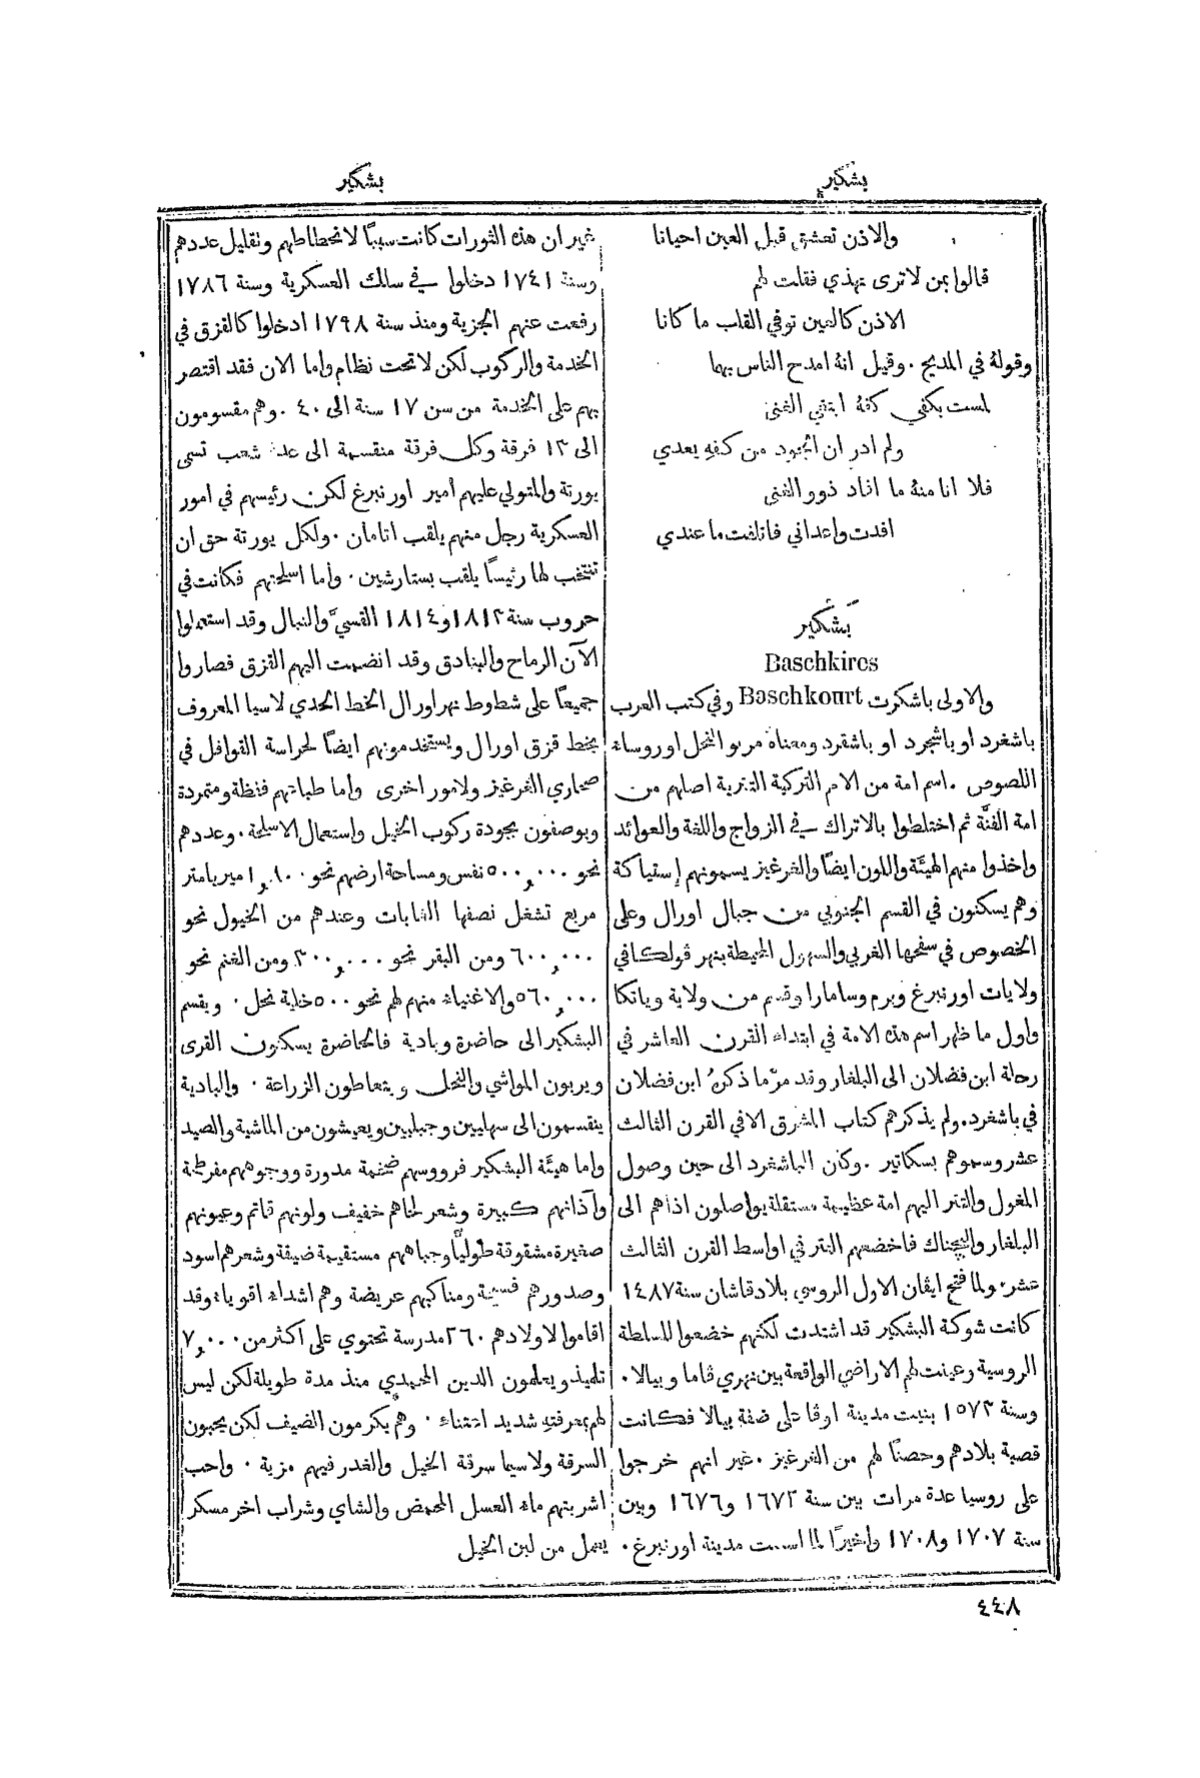 بشكير
بشكير
والاذن تعشق قبل العين احيانا
قالوا بمن لا ترى تهذي فقلت لهم
الاذن كالعين توفي القلب ما كانا
وقولهُ في المديح . وقيل انهُ امدح الناس بهما
لمست بكفي كفهُ ابتغي الغنى
ولم ادر ان الجود من كفهِ يعدي
فلا انا منهُ ما افاد ذوو الغنى
افدت واعداني فاتلفت ما عندي
بَشكير
Baschkires
والاولى باشكرت Baschkourt وفي كتب العرب
باشغرد او باشجرد او باشقرد ومعناهُ مربو النحل او روساء
اللصوص . اسم امة من الامم التركية التترية اصلهم من
امة الفنَّة ثم اختلطوا بالاتراك في الزواج واللغة والعوائد
واخذوا منهم الهيئة واللون ايضًا والغرغيز يسمونهم إستياكة
وهم يسكنون في القسم الجنوبي من جبال اورال وعلى
الخصوص في سفحها الغربي والسهول المحيطة بنهر ڤولكا في
ولايات اورنبرغ وبرم وسامارا وقسم من ولاية وياتكا
واول ما ظهر اسم هذه الامة في ابتداء القرن العاشر في
رحلة ابن فضلان الى البلغار وقد مرّ ما ذكرهُ ابن فضلان
في باشغرد . ولم يذكرهم كتاب المشرق الا في القرن الثالث
عشر وسموهم بسكاتير . وكان الباشغرد الى حين وصول
المغول والتتر اليهم امة عظيمة مستقلة يواصلون اذاهم الى
البلغار والبجناك فاخضعهم التتر في اواسط القرن الثالث
عشر . ولما فتح ايڤان الاول الروسي بلاد قاشان سنة ١٤٨٧
كانت شوكة البشكير قد اشتدت لكنهم خضعوا للسلطة
الروسية وعينت لهم الاراضي الواقعة بين نهري ڤاما وبيالا .
وسنة ١٥٧٣ بنيت مدينة اوفا على ضفة بيالا فكانت
قصبة بلادهم وحصنًا لهم من الغرغيز . غير انهم خرجوا
على روسيا عدة مرات بين سنة ١٦٧٢ و١٦٧٦ وبين
سنة ١٧٠٧ و١٧٠٨ واخيرًا لما اسست مدينة اورنبرغ .
غير ان هذه الثورات كانت سببًا لانحطاطهم وتقليل عددهم
وسنة ١٧٤١ دخلوا في سلك العسكرية وسنة ١٧٨٦
رفعت عنهم الجزية ومنذ سنة ١٧٩٨ ادخلوا كالقزق في
الخدمة والركوب لكن لا تحت نظام واما الان فقد اقتصر
بهم على الخدمة من سن ١٧ سنة الى ٤٠ . وهم مقسومون
الى ١٣ فرقة وكل فرقة منقسمة الى عدة شعب تسمى
يورتة والمتولي عليهم امير اورنبرغ لكن رئيسهم في امور
العسكرية رجل منهم يلقب اتامان . ولكل يورتة حق ان
تنتخب لها رئيسًا يلقب بستارشين . واما اسلحتهم فكانت في
حروب سنة ١٨١٣ و١٨١٤ القسيَّ والنبال وقد استعملوا
الآن الرماح والبنادق وقد انضمت اليهم القزق فصاروا
جميعًا على شطوط نهر اورال الخط الحدي لاسيا المعروف
بخط قزق اورال ويستخدمونهم ايضًا لحراسة القوافل في
صحاري الغرغيز ولامور اخرى واما طباتهم فنظة ومتمردة
ويوصفون بجودة ركوب الخيل واستعمال الاسلحة . وعددهم
نحو ٥٠٠,٠٠٠ نفس ومساحة ارضهم نحو ١,١٠٠ ميريامتر
مربع تشغل نصفها الغابات وعندهم من الخيول نحو
٦٠٠,٠٠٠ ومن البقر نحو ٣٠٠,٠٠٠ ومن الغنم نحو
٥٦٠,٠٠٠ والاغنياء منهم لهم نحو ٥٠٠ خلية نحل . ويقسم
البشكير الى حاضرة وبادية فالحاضرة يسكنون القرى
ويربون المواشي والنحل ويتعاطون الزراعة . والبادية
ينقسمون الى سهليين وجبليين ويعيشون من الماشية والصيد
واما هيئة البشكير فرووسهم ضخمة مدورة ووجوههم مفرطحة
وآذانهم كبيرة وشعر لحاهم خفيف ولونهم قاتم وعيونهم
صغيرة مشقوقة طوليًّا وجباههم مستقيمة ضيقة وشعرهم اسود
وصدورهم فسيحة ومناكبهم عريضة وهم اشداء اقوياء وقد
اقاموا لاولادهم ٢٦٠ مدرسة تحتوي على اكثر من ٧,٠٠٠
تلميذ ويعلمون الدين المحمدي منذ مدة طويلة لكن ليس
لهم بمعرفتهِ شديد اعتناء . وهم يكرمون الضيف لكن يحبون
السرقة ولاسيما سرقة الخيل والغدر فيهم مزية . واحب
اشربتهم ماء العسل المحمض والشاي وشراب اخر مسكر
يعمل من لبن الخيل
٤٤٨